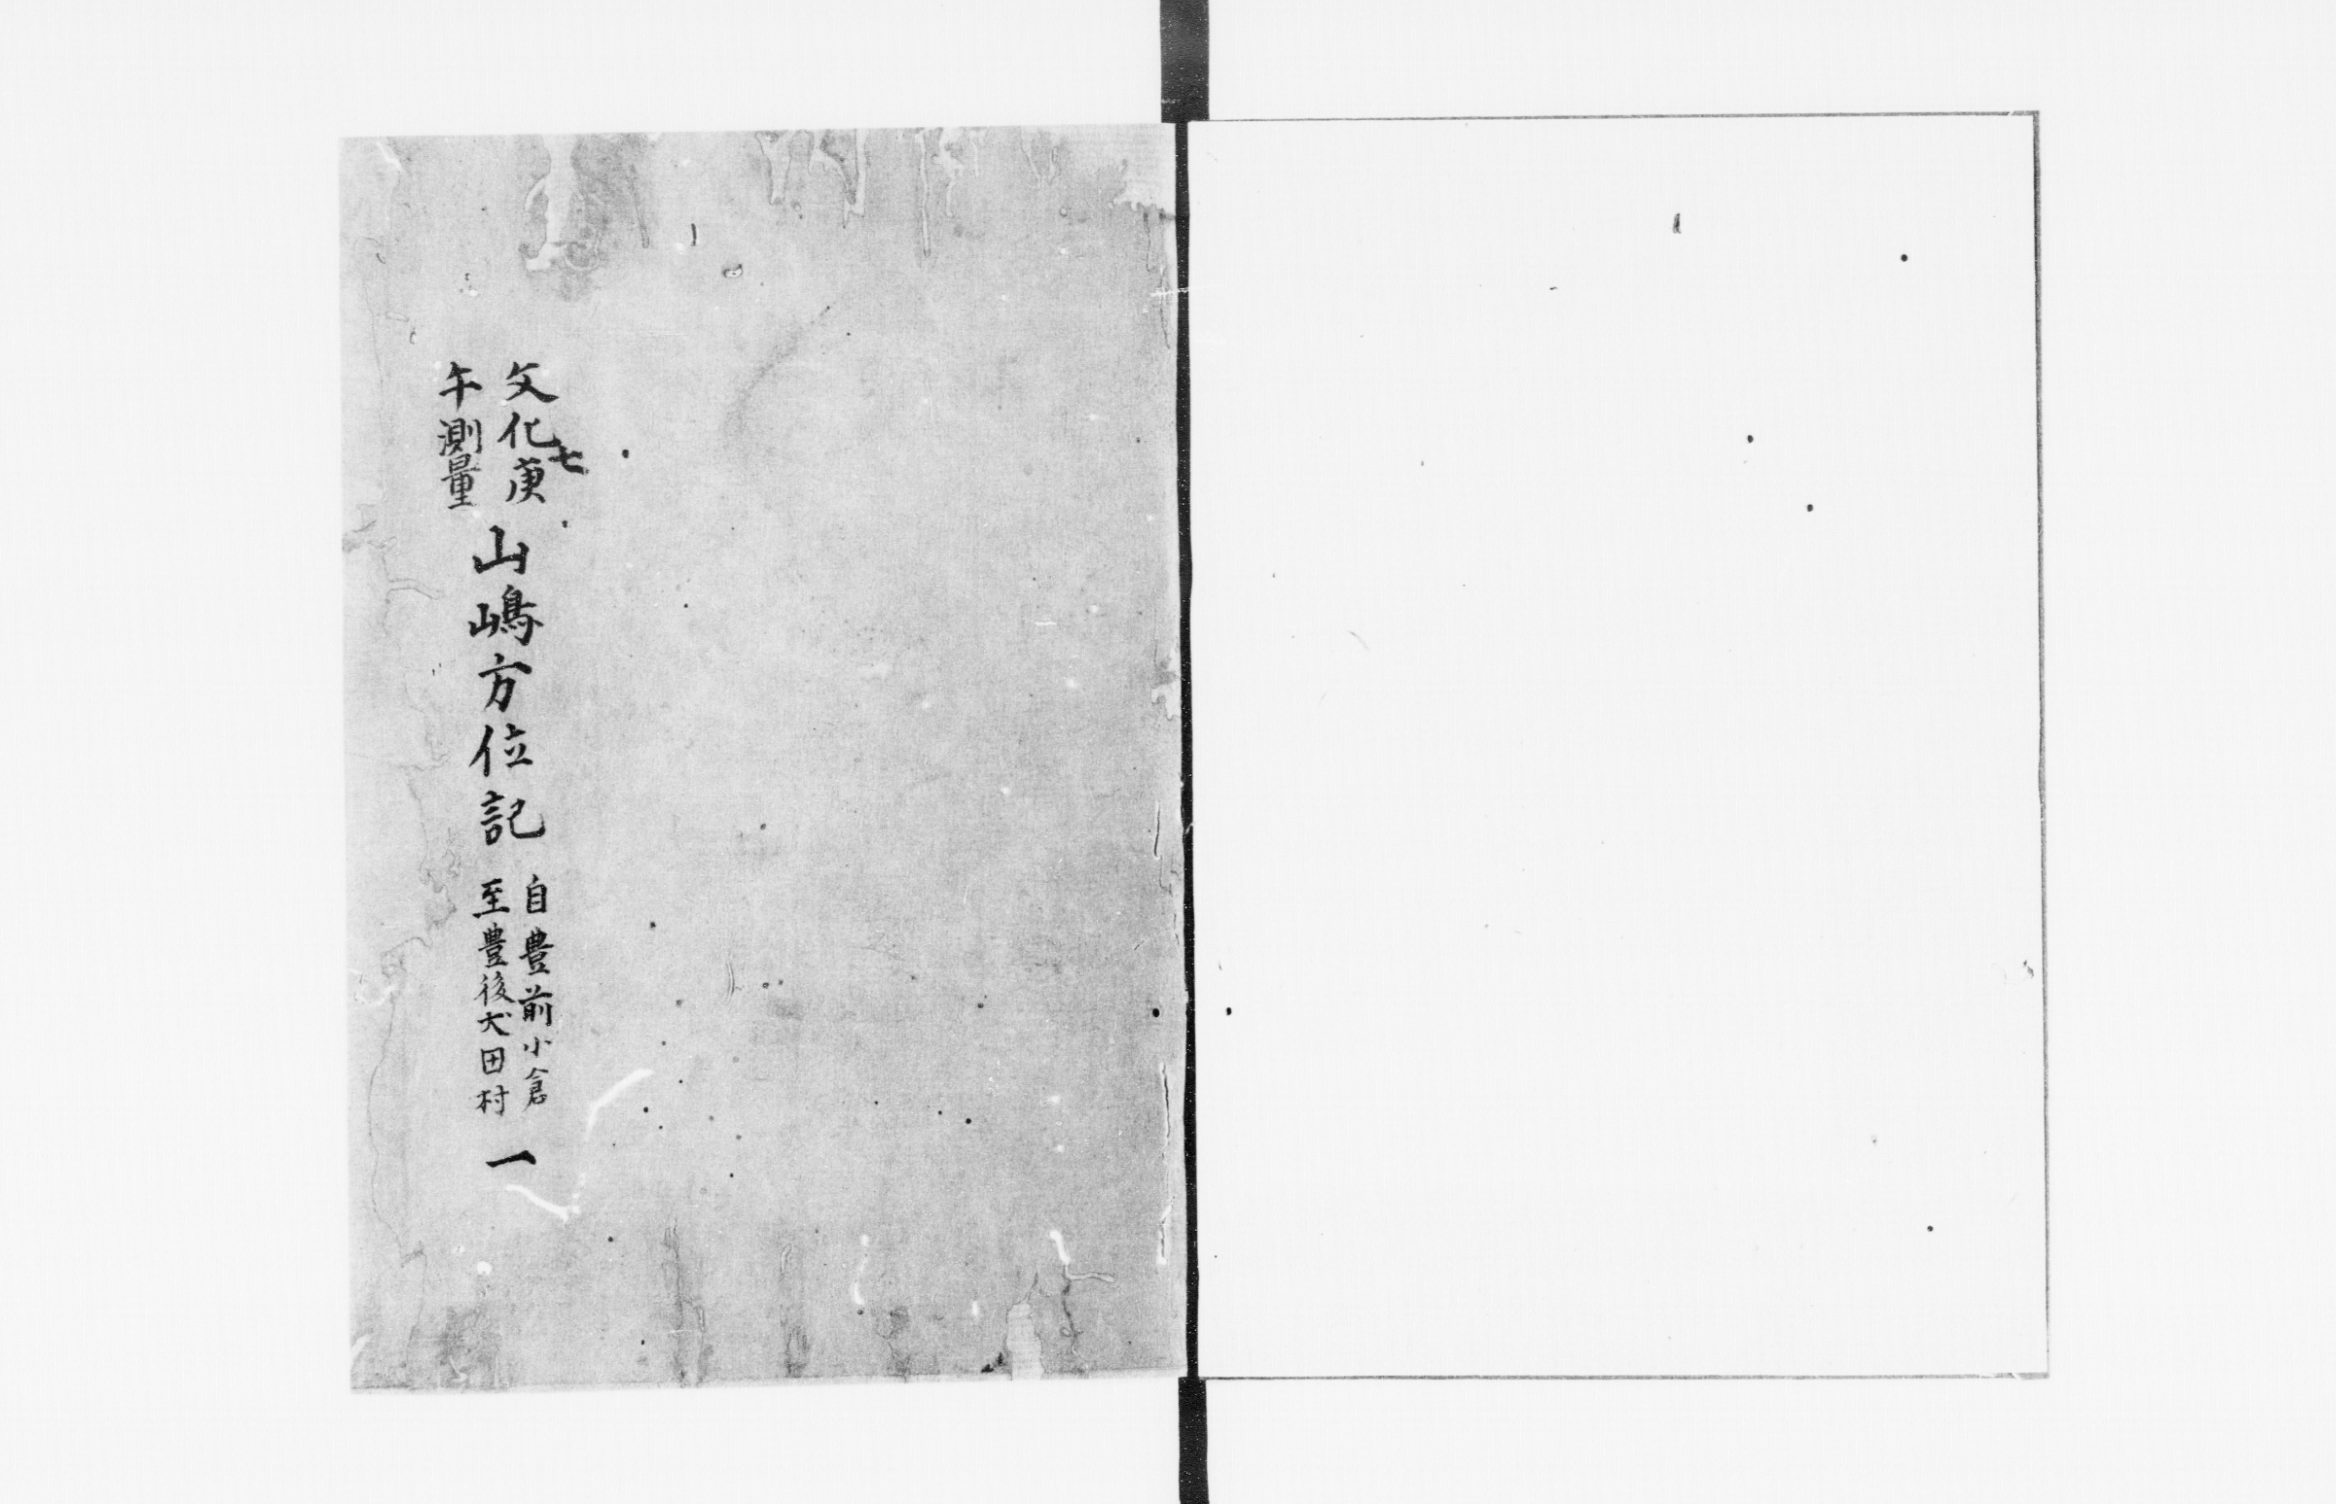 文化七庚
午測量
山嶋方位記
自豊前小倉
至豊後犬田村
一